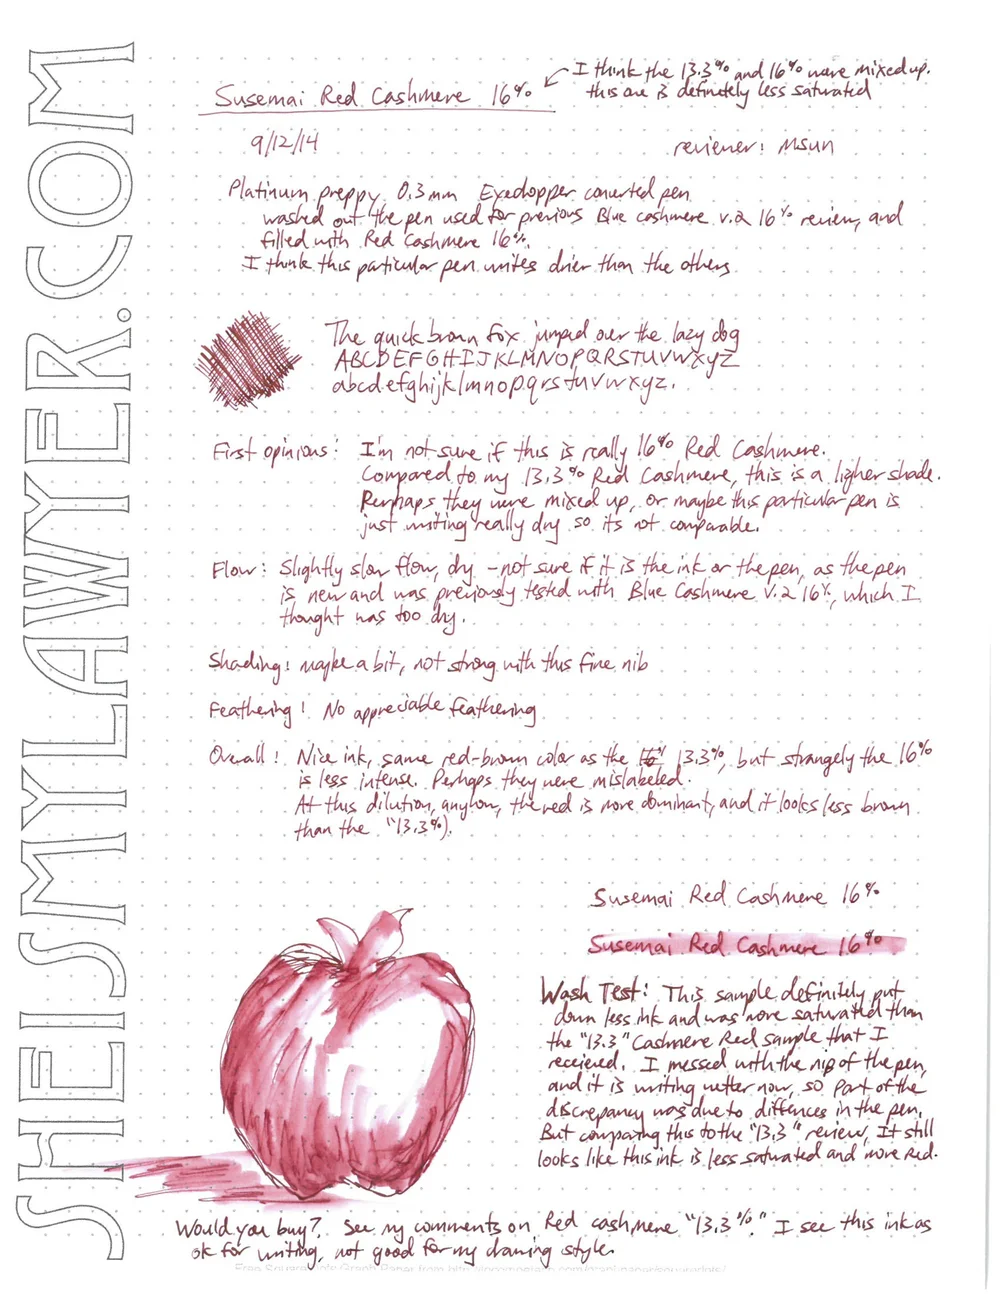 SHEISMYLAWYER.COM
Susemai Red Cashmere 16%
I think the 13.3% and 16% were mixed up.
this one is definitely less saturated
9/12/14
reviewer: Msun
Platinum preppy 0.3mm Eyedropper converted pen
washed out the pen used for previous Blue cashmere v.2 16% review, and
filled with Red Cashmere 16%.
I think this particular pen writes drier than the others
The quick brown fox jumped over the lazy dog
ABCDEFGHIJKLMNOPQRSTUVWXYZ
abcdefghijklmnopqrstuvwxyz.
First opinions: I'm not sure if this is really 16% Red Cashmere.
Compared to my 13.3% Red Cashmere, this is a ligher shade.
Perhaps they were mixed up, or maybe this particular pen is
just writing really dry so its not comparable.
Flow: Slightly slow flow, dry - not sure if it is the ink or the pen, as the pen
is new and was previously tested with Blue Cashmere V.2 16%, which I
thought was too dry.
Shading: maybe a bit, not strong with this fine nib
Feathering: No appreciable feathering
Overall: Nice ink, same red-brown color as the 16% 13.3%, but strangely the 16%
is less intense. Perhaps they were mislabeled.
At this dilution, anyhow, the red is more dominant, and it looks less brown
than the "13.3%).
Susemai Red Cashmere 16%
Susemai Red Cashmere 16%
Wash Test: This sample definitely put
down less ink and was more saturated than
the "13.3" Cashmere Red sample that I
receiered. I messed with the nip of the pen,
and it is writing wetter now, so part of the
discrepancy was due to diffences in the pen.
But comparing this to the "13.3" review, It still
looks like this ink is less saturated and more Red.
Would you buy? See my comments on Red cashmere "13.3%." I see this ink as
ok for writing, not good for my drawing style.